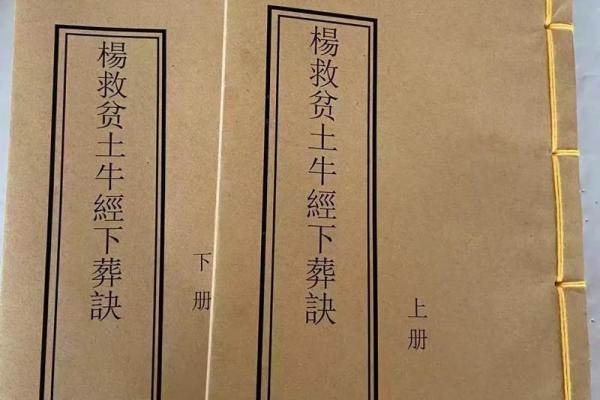 楊救贫土牛經下葬訣
上册
楊救贫土牛經下葬訣
下册